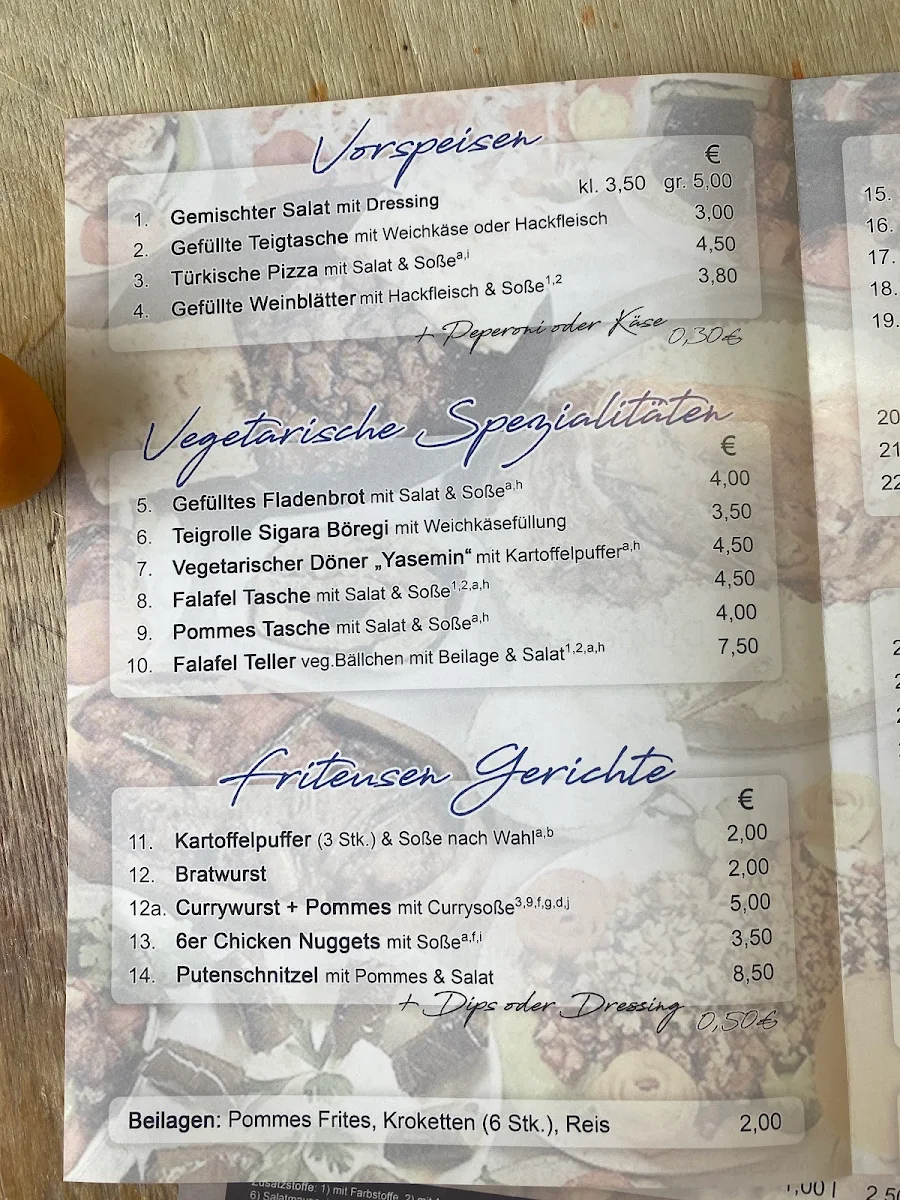 Vorspeisen
€
1. Gemischter Salat mit Dressing kl. 3,50 gr. 5,00
2. Gefüllte Teigtasche mit Weichkäse oder Hackfleisch 3,00
3. Türkische Pizza mit Salat & Soße a,i 4,50
4. Gefüllte Weinblätter mit Hackfleisch & Soße 1,2 3,80
+ Peperoni oder Käse 0,30€
Vegetarische Spezialitäten
€
5. Gefülltes Fladenbrot mit Salat & Soße a,h 4,00
6. Teigrolle Sigara Böregi mit Weichkäsefüllung 3,50
7. Vegetarischer Döner „Yasemin“ mit Kartoffelpuffer a,h 4,50
8. Falafel Tasche mit Salat & Soße 1,2,a,h 4,50
9. Pommes Tasche mit Salat & Soße a,h 4,00
10. Falafel Teller veg.Bällchen mit Beilage & Salat 1,2,a,h 7,50
Friteusen Gerichte
€
11. Kartoffelpuffer (3 Stk.) & Soße nach Wahl a,b 2,00
12. Bratwurst 2,00
12a. Currywurst + Pommes mit Currysoße 3,9,f,g,d,j 5,00
13. 6er Chicken Nuggets mit Soße a,f,i 3,50
14. Putenschnitzel mit Pommes & Salat 8,50
+ Dips oder Dressing 0,50€
Beilagen: Pommes Frites, Kroketten (6 Stk.), Reis 2,00
15.
16.
17.
18.
19.
20
21
22
Zusatzstoffe: 1) mit Farbstoffe, 2)
6)